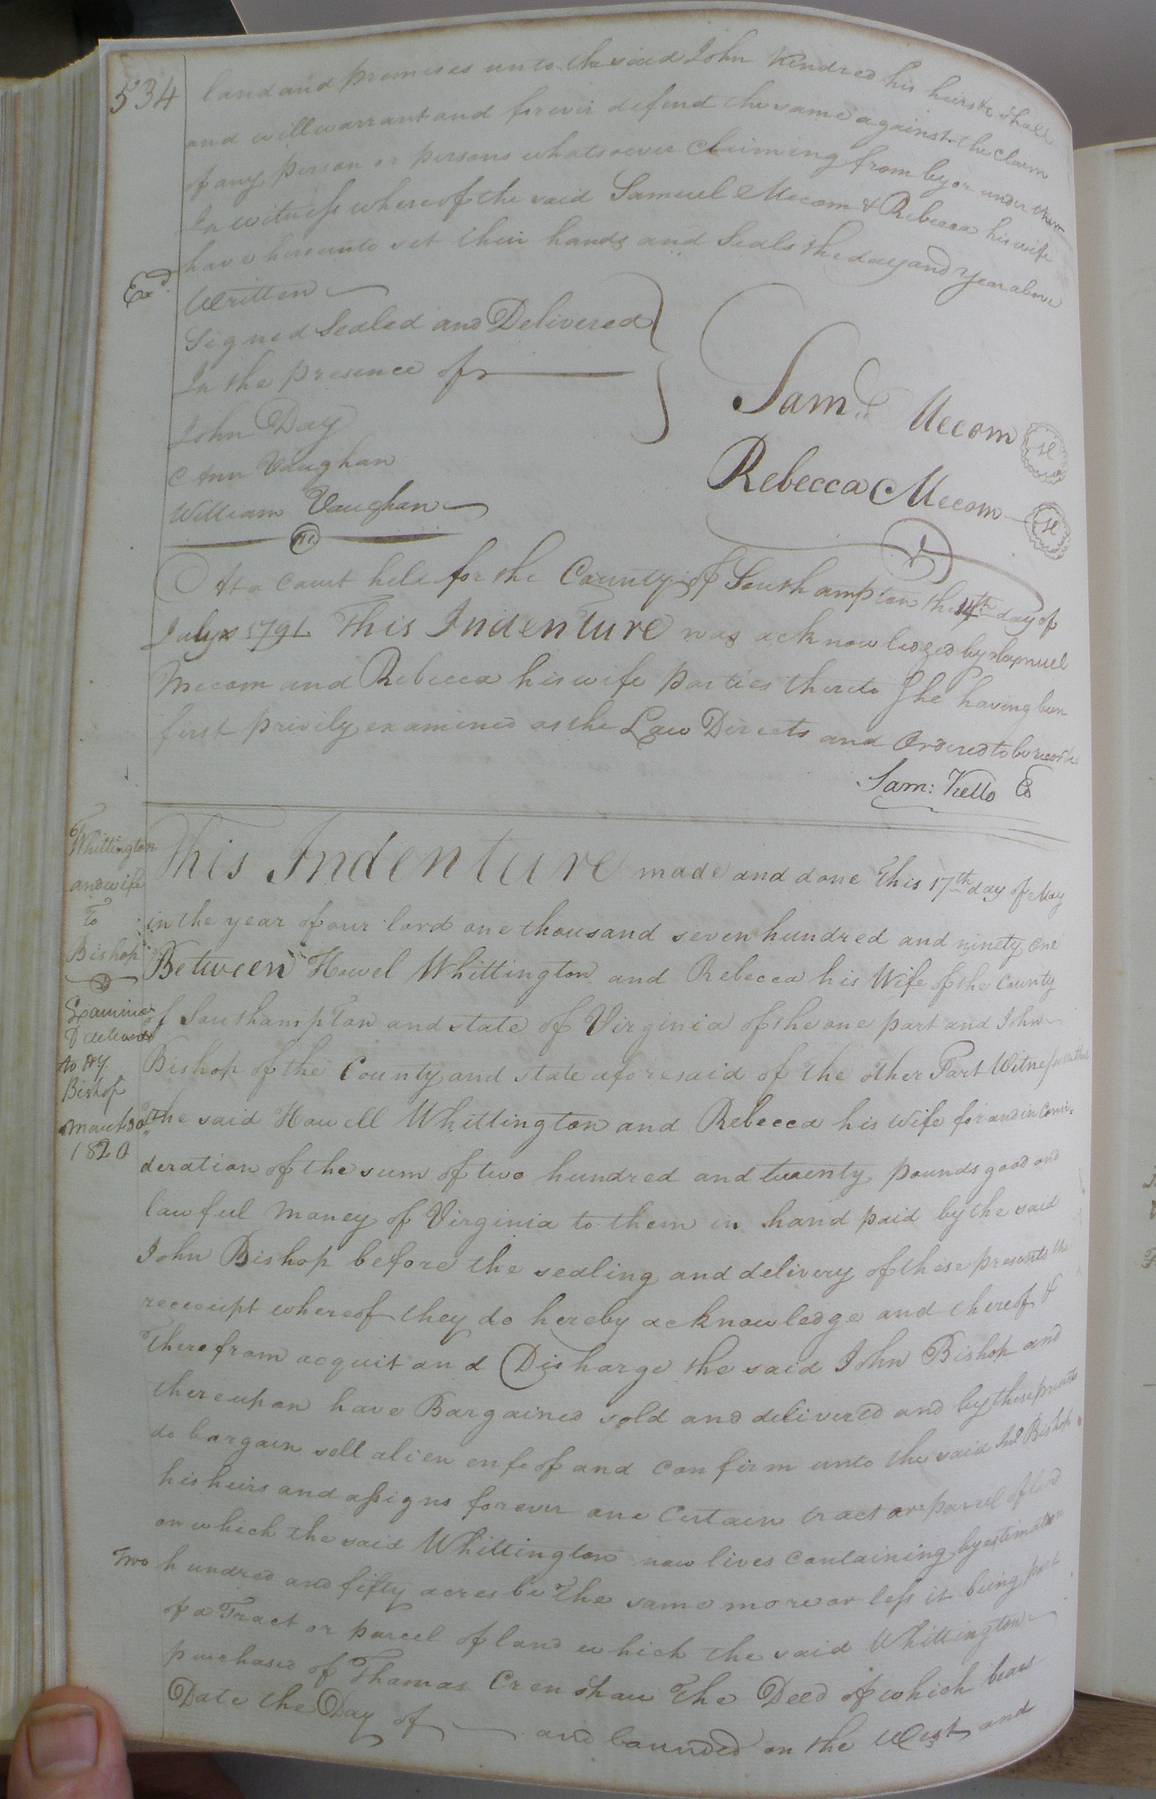 534
land and premises unto the said John Kindred his heirs &c shall
and will warrant and forever defend the same against the claim
of any person or persons whatsoever Claiming from by or under them
In witness whereof the said Samuel Mecom & Rebecca his wife
have hereunto set their hands and Seals the day and year above
Exd.
Written
Signed Sealed and Delivered
In the presence of
John Day
Ann Vaughan
William Vaughan
Saml. Mecom
Rebecca Mecom
At a Court held for the County of Southampton the 14th day of
July 1791 This Indenture was acknowledged by Samuel
Mecom and Rebecca his wife parties thereto She having been
first privily examined as the Law Directs and Ordered to be recorded
Sam: Kello
Whittington
and wife
To
Bishop
Examined
Delivered
to Hy
Bishop
March 30
1820
This Indenture made and done This 17th day of May
in the year of our lord one thousand seven hundred and ninety one
Between Howel Whittington and Rebecca his Wife of the County
of Southampton and state of Virginia of the one part and John
Bishop of the County and state aforesaid of the other Part Witnesseth that
the said Howell Whittington and Rebecca his wife for and in Consi-
deration of the sum of two hundred and twenty pounds good and
lawful money of Virginia to them in hand paid by the said
John Bishop before the sealing and delivery of these presents the
receeipt whereof they do hereby acknowledge and thereof &
Therefrom acquit and Discharge the said John Bishop and
thereupon have Bargained sold and delivered and by these presents
do bargain sell alien enfeof and confirm unto the said Jno Bishop
his heirs and assigns forever one Certain tract or parcel of land
on which the said Whittington now lives containing by estimation
Two hundred and fifty acres be The same more or less it being part
of a Tract or parcel of land which the said Whittington
purchased of Thomas Crenshaw The Deed of which bears
Date the Day of and bounded on the West and